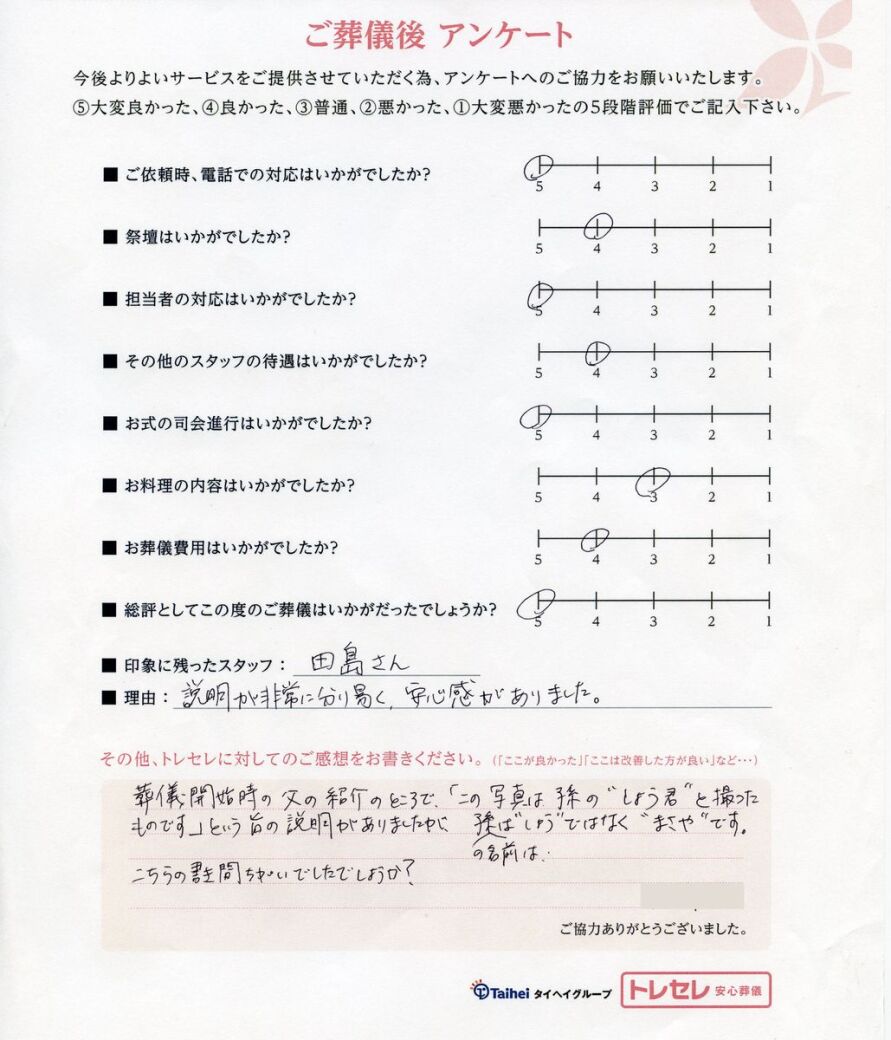 ご葬儀後 アンケート
今後よりよいサービスをご提供させていただく為、アンケートへのご協力をお願いいたします。
⑤大変良かった、④良かった、③普通、②悪かった、①大変悪かったの5段階評価でご記入下さい。
■ ご依頼時、電話での対応はいかがでしたか?
5 4 3 2 1
■ 祭壇はいかがでしたか?
5 4 3 2 1
■ 担当者の対応はいかがでしたか?
5 4 3 2 1
■ その他のスタッフの待遇はいかがでしたか?
5 4 3 2 1
■ お式の司会進行はいかがでしたか?
5 4 3 2 1
■ お料理の内容はいかがでしたか?
5 4 3 2 1
■ お葬儀費用はいかがでしたか?
5 4 3 2 1
■ 総評としてこの度のご葬儀はいかがだったでしょうか?
5 4 3 2 1
■ 印象に残ったスタッフ： 田島さん
■ 理由： 説明が非常に分り易く、安心感がありました。
その他、トレセレに対してのご感想をお書きください。(「ここが良かった」「ここは改善した方が良い」など…)
葬儀開始時の父の紹介のところで、「この写真は孫の"しょう君"と撮った
ものです」という旨の説明がありましたが、孫は"しょう"ではなく"まさや"です。
の名前は、
こちらの書き間ちがいでしたでしょうか?
ご協力ありがとうございました。
Taihei タイヘイグループ トレセレ 安心葬儀